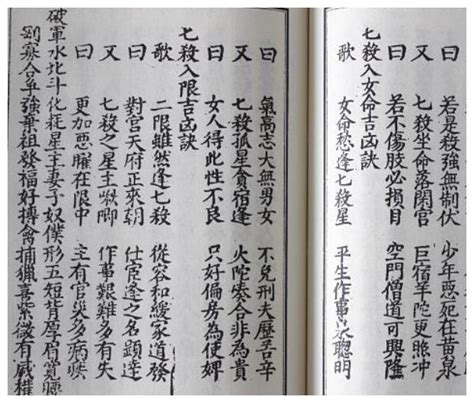 若是殺強無制伏 少年惡死在黃泉
又 七殺坐命落閑宮 巨宿羊陀更照冲
曰 若不傷肢必損目 空門僧道可興隆
七殺入女命吉凶訣
歌 女命愁逢七殺星 平生作事 聰明
曰 氣高志大無男女 不免刑夫歷苦辛
又 七殺孤星貪宿逢 火陀湊合非為貴
曰 女人得此性不良 只好偏房為使婢
七殺入限吉凶訣
歌 二限雖然逢七殺 從容和緩家道發
曰 對宮天府正來朝 仕臣逢之名顕達
又 七殺之星主 啣 作事艱難多有失
曰 更加惡曜在限中 主有官災多病疾
破軍水北斗化耗星主妻子奴僕形五短背厚肩寬腰
寡合争強棄祖發福好搏禽捕獵喜紫微有威權